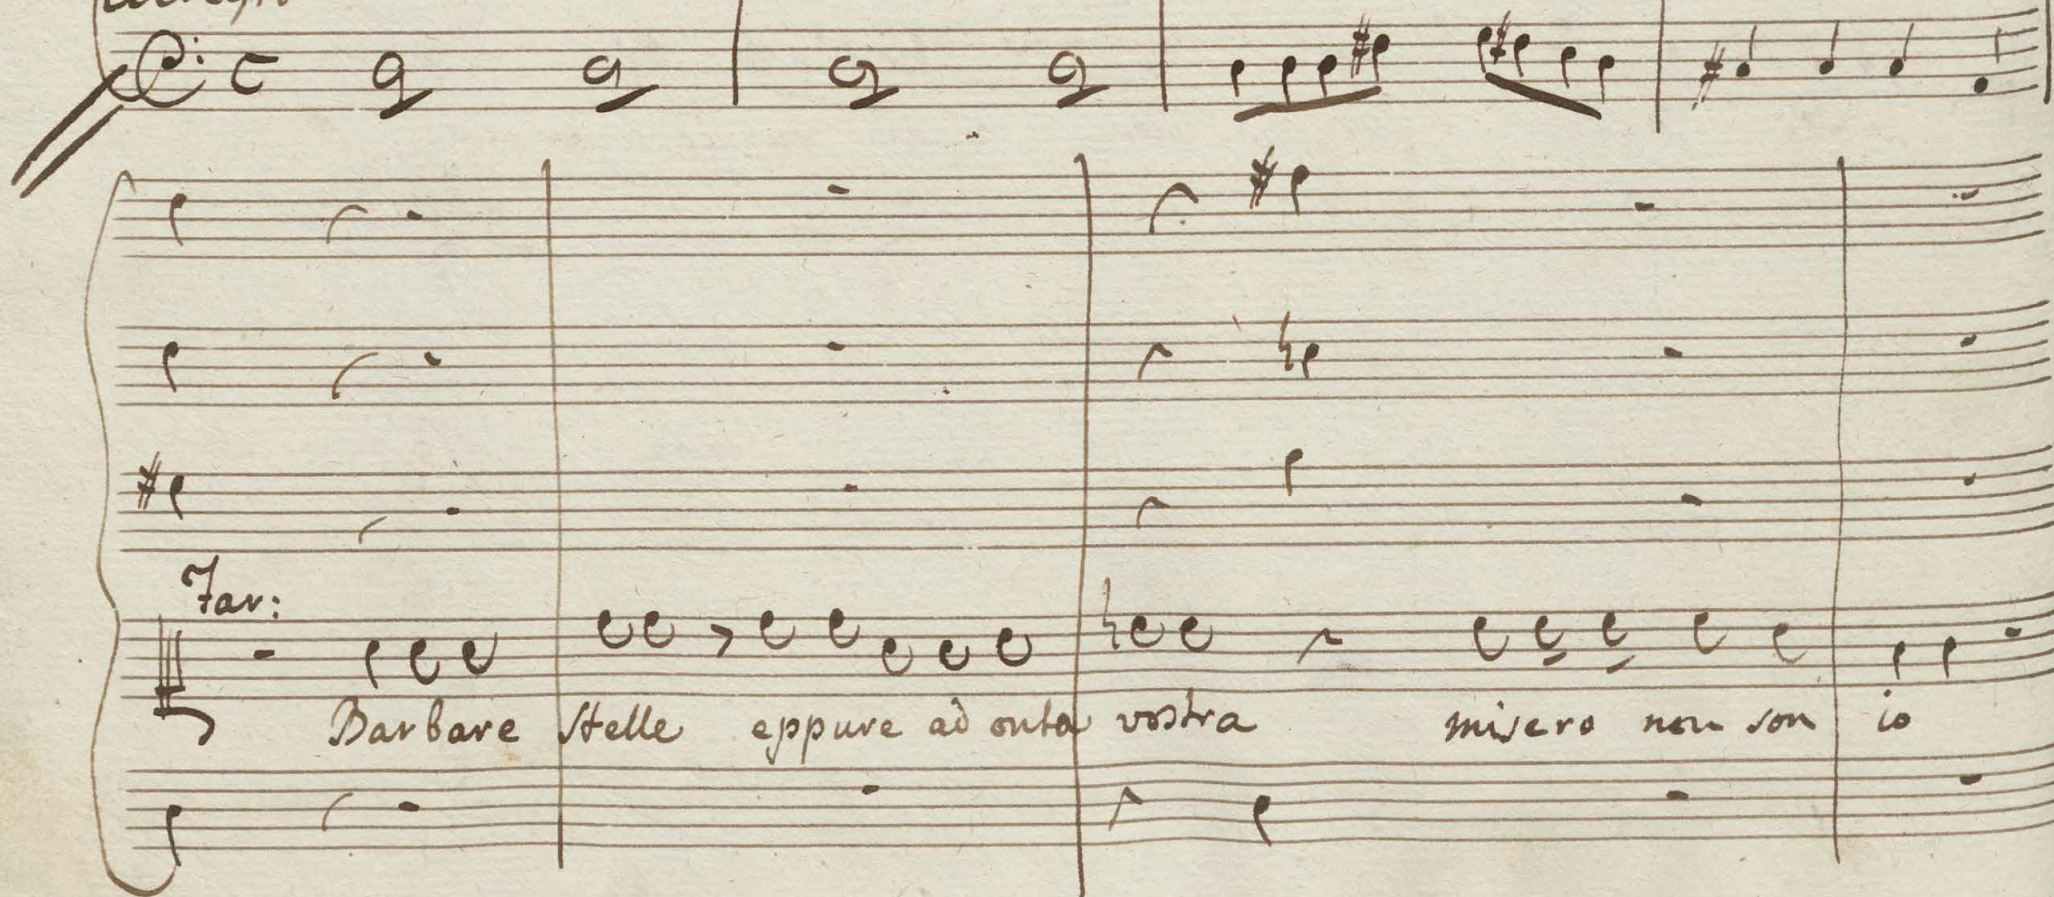 Far:
Barbare Stelle eppure ad onta vostra misero non son io